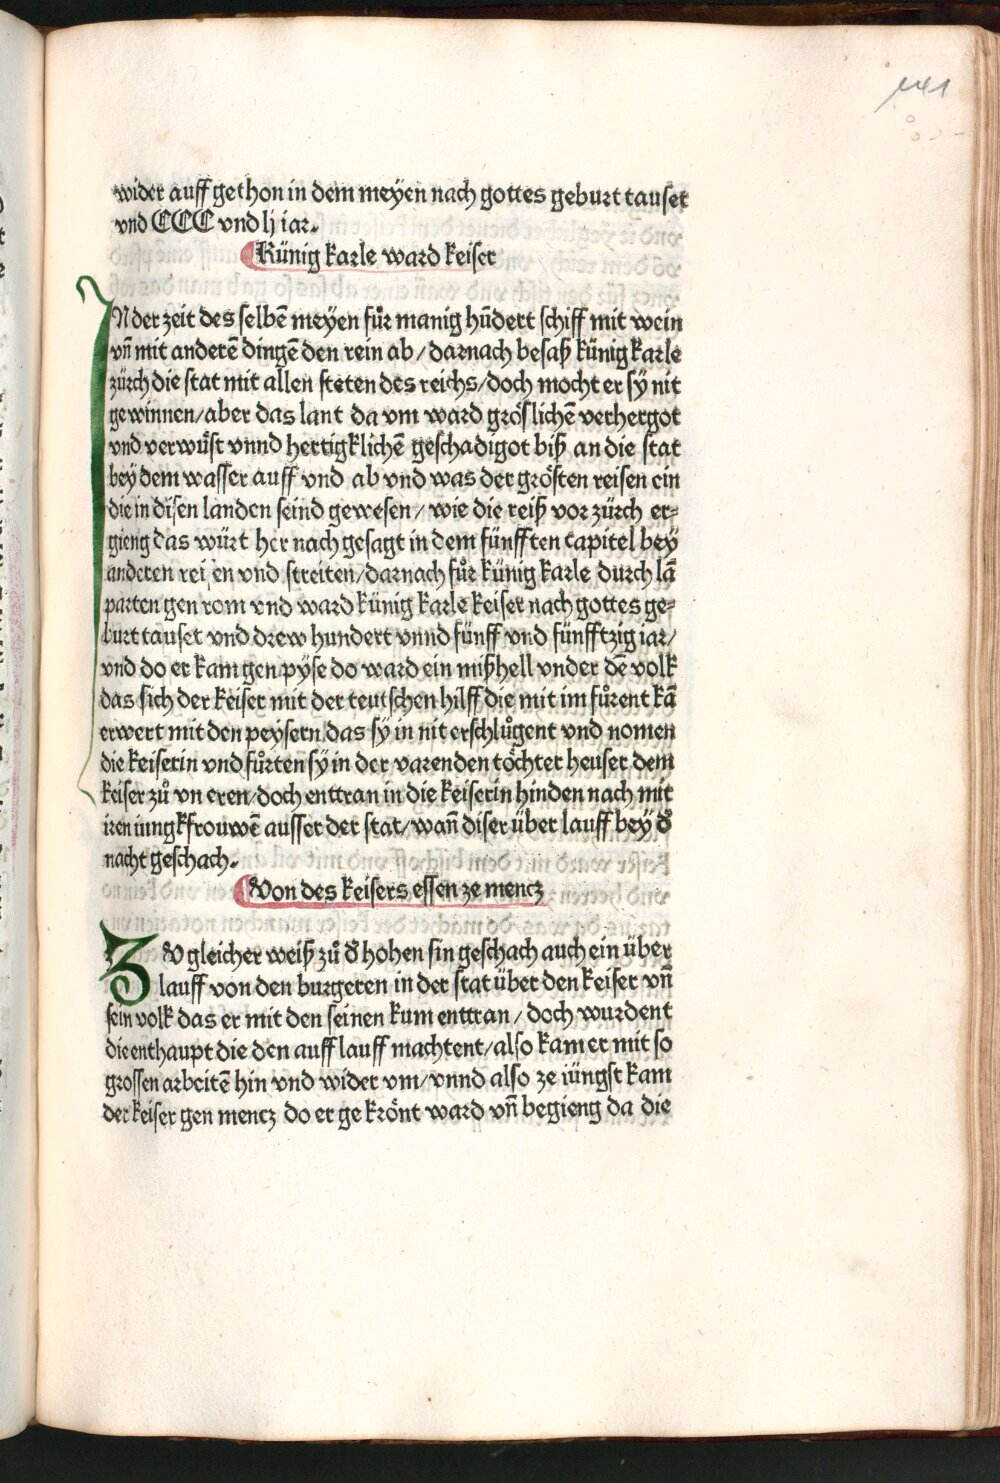 141
wider auff gethon in dem meyen nach gottes geburt tauset
vnd CCC vnd lj iar.
Künig karle ward keiser
IN der zeit des selbē meyen fůr manig hūdert schiff mit wein
vn̄ mit anderē dingē den rein ab / darnach besaß künig karle
zürch die stat mit allen steten des reichs / doch mocht er sÿ nit
gewinnen / aber das lant da vm ward gröslichē verhergot
vnd verwůst vnnd hertigklichē geschadigot biß an die stat
beÿ dem wasser auff vnd ab vnd was der grösten reisen ein
die in disen landen seind gewesen / wie die reiß vor zürch er⸗
gieng das würt her nach gesagt in dem fünfften capitel beÿ
anderen rei en vnd streiten / darnach fůr künig karle durch lā
parten gen rom vnd ward künig karle keiser nach gottes ge⸗
burt tauset vnd drew hundert vnnd fünff vnd fünfftzig iar /
vnd do er kam gen pÿse do ward ein mißhell vnder dē volk
das sich der keiser mit der teutschen hilff die mit im fůrent kā
erwert mit den peysern das sÿ in nit erschlůgent vnd nomen
die keiserin vnd fůrten sÿ in der varenden töchter heuser dem
keiser zů vn eren / doch enttran in die keiserin hinden nach mit
iren iungkfrouwē ausser der stat / wan̄ diser über lauff beÿ d̾
nacht geschach.
Von des keisers essen ze mencz
ZV gleicher weiß zů d̾ hohen sin geschach auch ein über
lauff von den burgeren in der stat über den keiser vn̄
sein volk das er mit den seinen kum enttran / doch wurdent
die enthaupt die den auff lauff machtent / also kam er mit so
grossen arbeitē hin vnd wider vm / vnnd also ze iüngst kam
der keiser gen mencz do er ge krönt ward vn̄ begieng da die